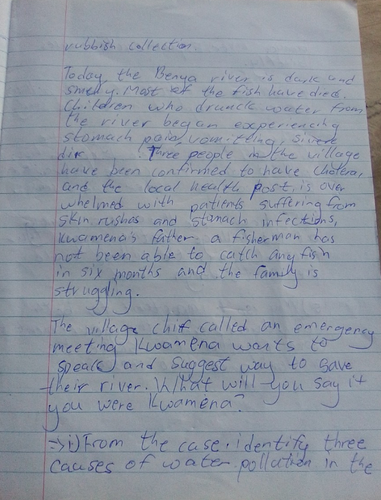 rubbish collection.
Today the Benya river is dark and
smelly. Most of the fish have died.
Children who drunck water from
the river began experiencing
stomach pain, vomitting, sivere
Three people in the village
have been confirmed to have cholera,
and the local health post is over
whelmed with patients suffering from
skin rushes and stomach infections,
Kwamena's father, a fisherman has
not been able to catch any fish
in six months and the family is
struggling.
The village chif called an emergency
meeting Kwamena wants to
speak and suggest way to save
their river. What will you say if
you were Kwamena?
=> i) From the case, identify three
causes of water pollution in the